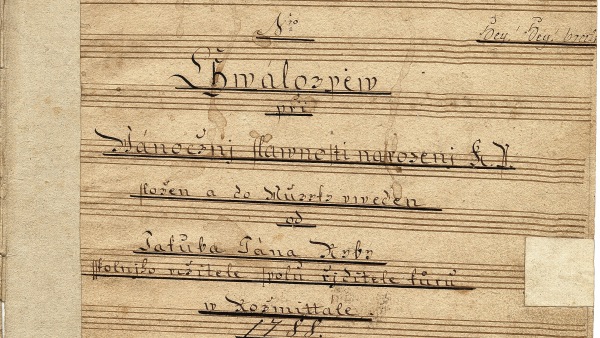 Nro
Hey! Hey!
Chwálozpěw
při
Wánočnj slawnosti narozenj K. P.
složen a do Muzyky vweden
od
Jakuba Jána Ryby
školnjho učitele spolu řjditele kůru
w Rožmittale.
1788.